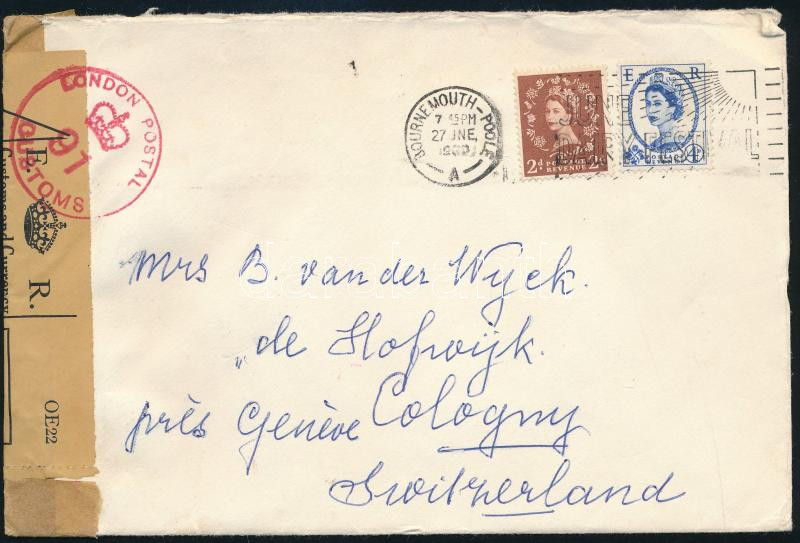 LONDON POSTAL
91
CUSTOMS
E.
R.
OE22
BOURNEMOUTH - POOLE
7 45PM
27 JNE.
A
2d POSTAGE 2d
REVENUE
E R
JUNE
Mrs B. van der Wyck.
„de Hofwijk.
près Genève Cologny
Switzerland